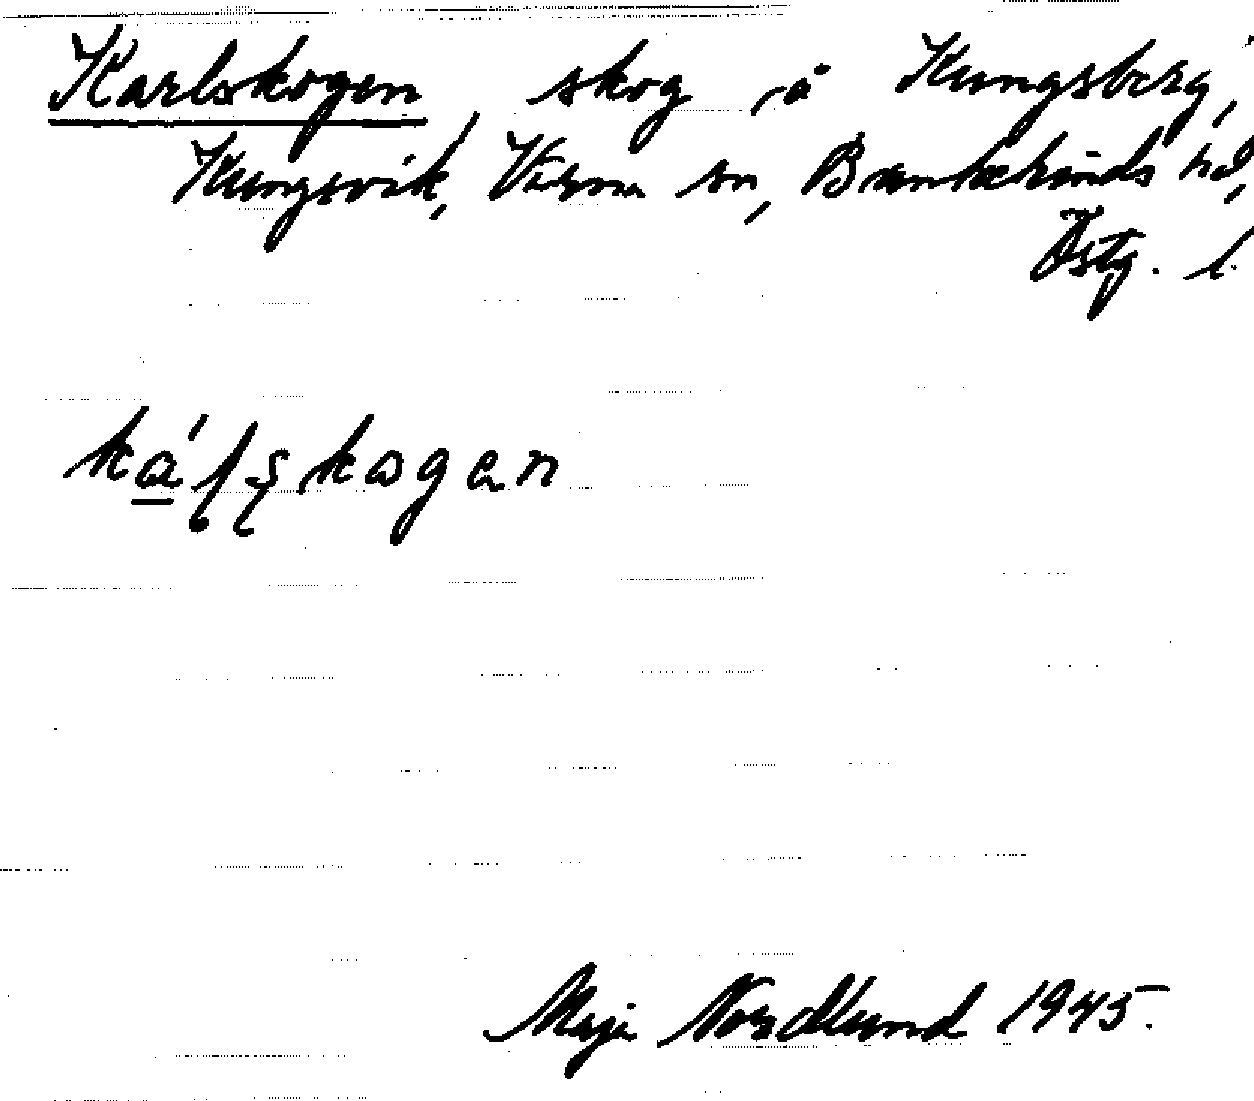 Karlskogen, skog på Kungsberg,
Kungsvik, Värna sn, Bankekinds hd,
Östg. l.
skogen
Maja Nordlund 1945.